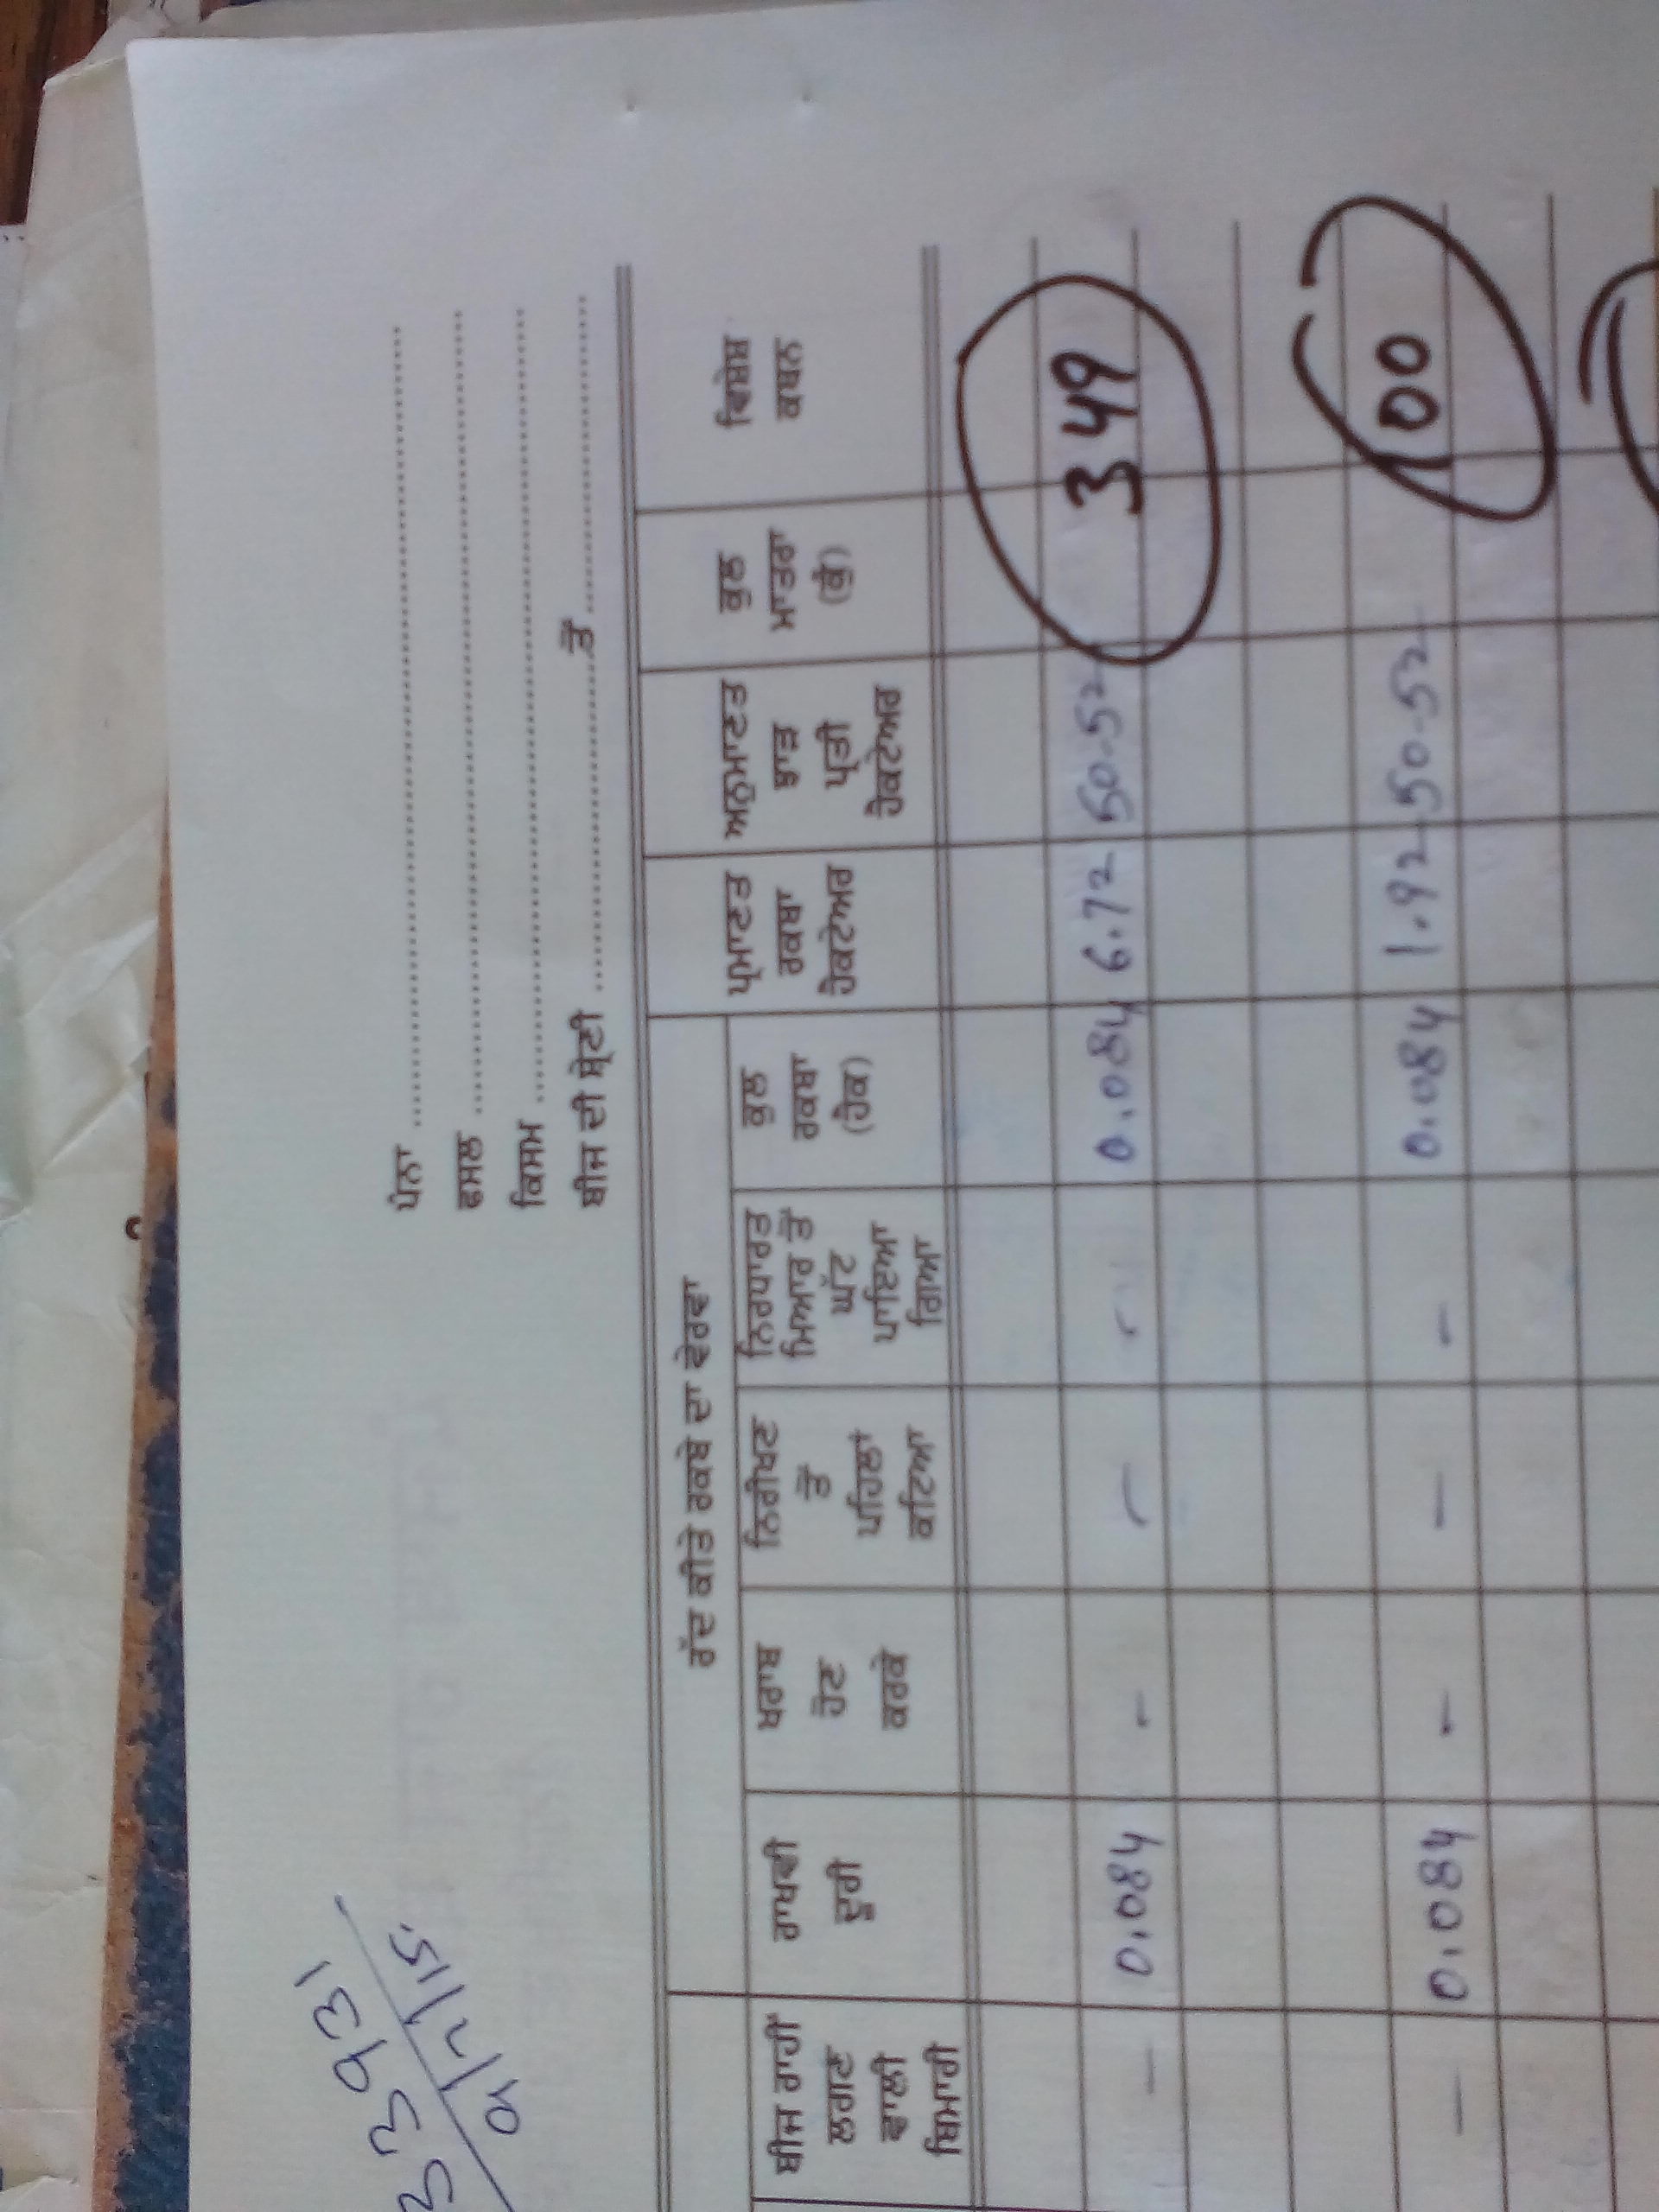 33931
9/2/15.
ਪੰਨਾ
ਫਸਲ
ਕਿਸਮ
ਬੀਜ ਦੀ ਸ਼੍ਰੇਣੀ ਤੋਂ
ਰੱਦ ਕੀਤੇ ਰਕਬੇ ਦਾ ਵੇਰਵਾ
ਬੀਜ ਰਾਹੀਂ ਲਗਣ ਵਾਲੀ ਬਿਮਾਰੀ
ਰਾਖਵੀ ਦੂਰੀ
ਖਰਾਬ ਹੋਣ ਕਰਕੇ
ਨਿਰੀਖਣ ਤੋਂ ਪਹਿਲਾਂ ਕਟਿਆ
ਨਿਰਧਾਰਤ ਮਿਆਰ ਤੋਂ ਘੱਟ ਪਾਇਆ ਗਿਆ
ਕੁਲ ਰਕਬਾ (ਹੈਕ)
ਪ੍ਰਮਾਣਤ ਰਕਬਾ ਹੈਕਟੇਅਰ
ਅਨੁਮਾਣਤ ਝਾੜ ਪ੍ਰਤੀ ਹੈਕਟੇਅਰ
ਕੁਲ ਮਾਤਰਾ (ਕੁੰ)
ਵਿਸ਼ੇਸ਼ ਕਥਨ
– 0.084 – – – 0.084 6.72 50-52 349
– 0.084 – – – 0.084 1.92 50-52 100